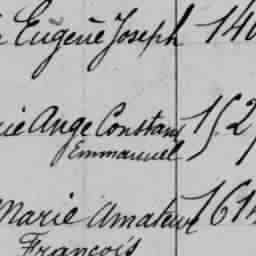 Eugène Joseph 140
rie Ange Constant 152
Emmanuel
Marie Amateur 161
François